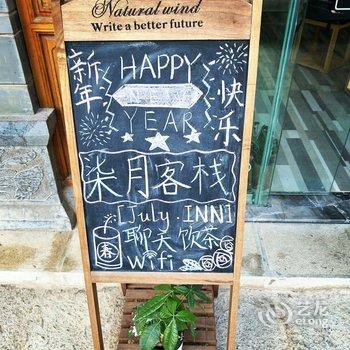 Natural wind
Write a better future
新年 HAPPY 快乐
YEAR
柒月客栈
[July.INN]
聊天饮茶
Wifi
艺龙
eLong.com